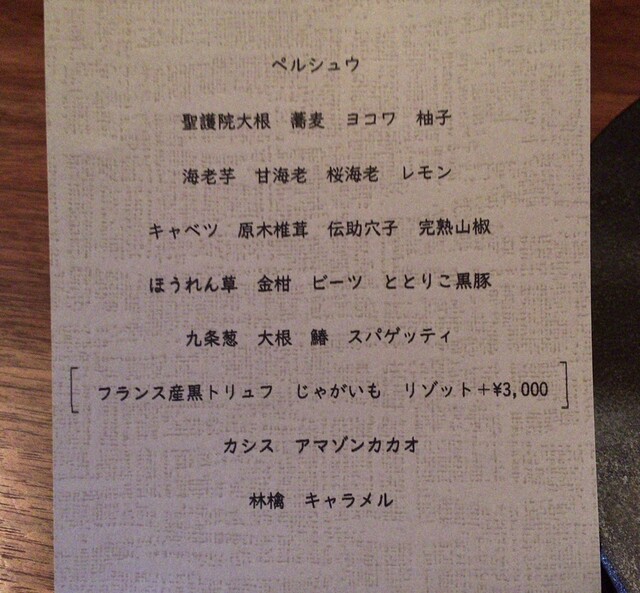 ペルシュウ
聖護院大根　蕎麦　ヨコワ　柚子
海老芋　甘海老　桜海老　レモン
キャベツ　原木椎茸　伝助穴子　完熟山椒
ほうれん草　金柑　ビーツ　ととりこ黒豚
九条葱　大根　鰆　スパゲッティ
[フランス産黒トリュフ　じゃがいも　リゾット＋¥3,000]
カシス　アマゾンカカオ
林檎　キャラメル